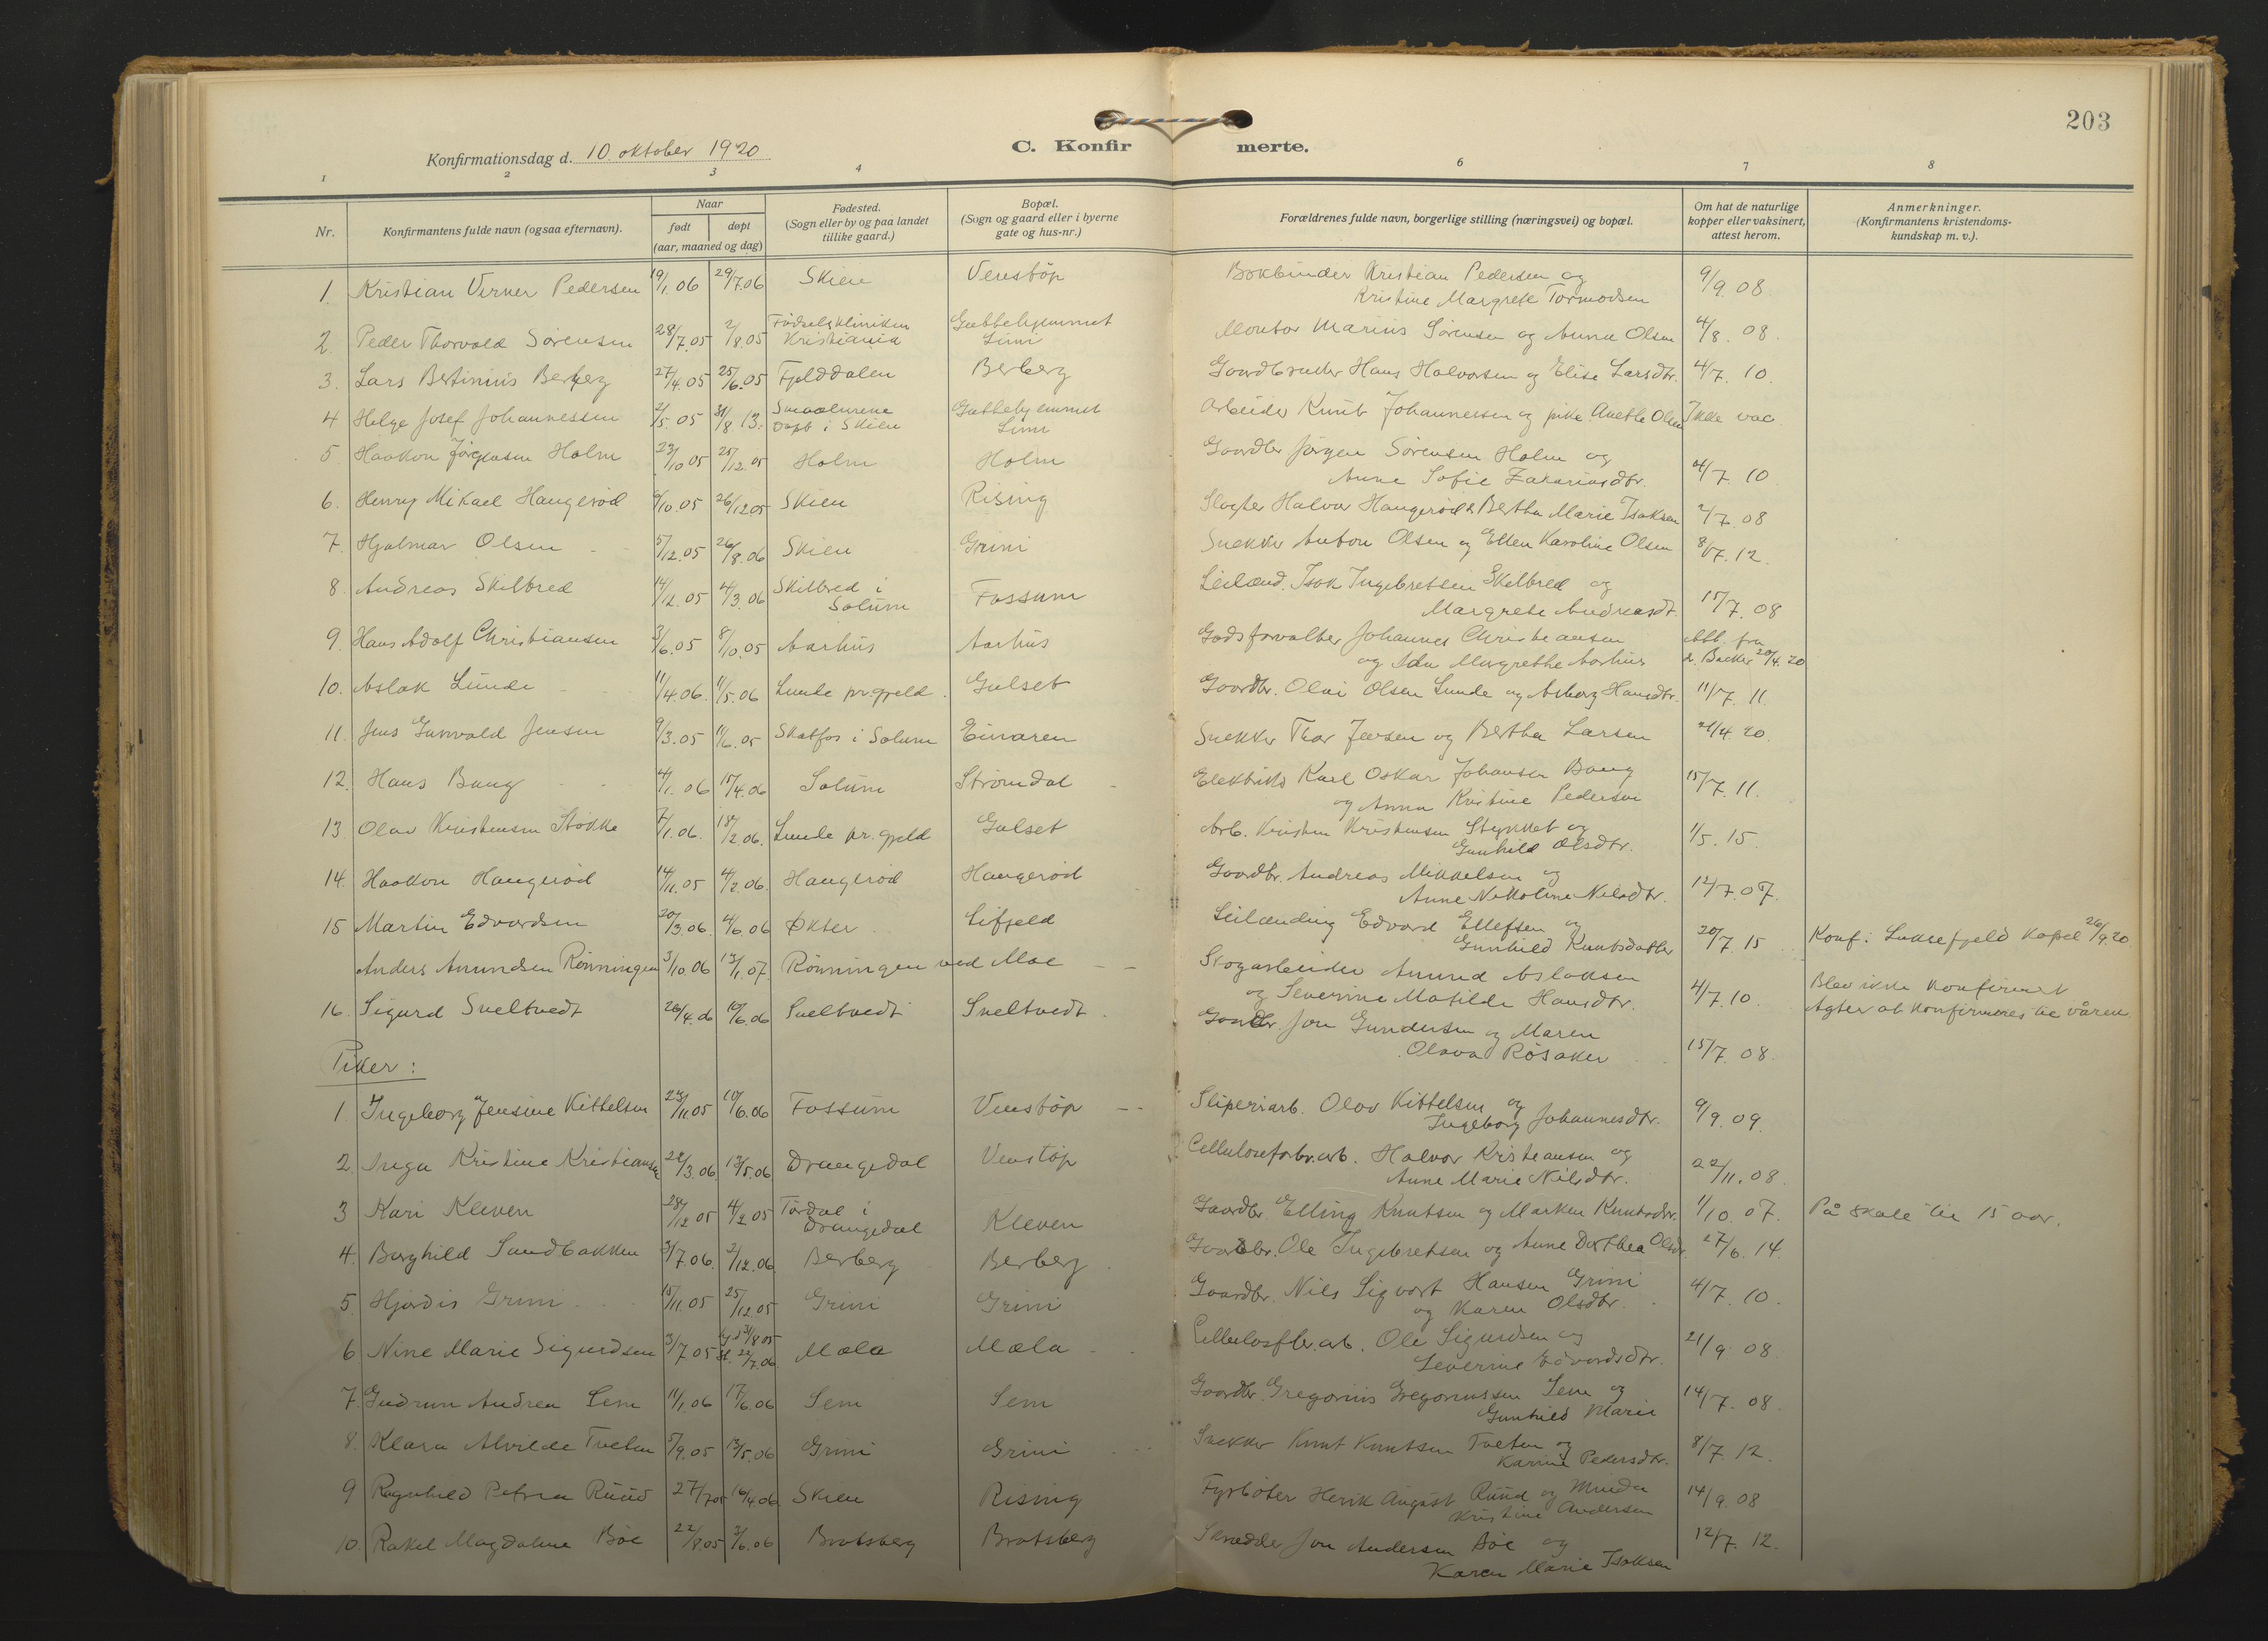 203
Konfirmationsdag d. 10 oktober 1920
C. Konfirmerte.
1 2 3 4 6 7 8
Nr.
Konfirmantens fulde navn (ogsaa efternavn).
Naar
født døpt
(aar, maaned og dag)
Fødested.
(Sogn eller by og paa landet
tillike gaard.)
Bopæl.
(Sogn og gaard eller i byerne
gate og hus-nr.)
Forældrenes fulde navn, borgerlige stilling (næringsvei) og bopæl.
Om hat de naturlige
kopper eller vaksinert,
attest herom.
Anmerkninger.
(Konfirmantens kristendoms-
kundskap m. v.).
1. Kristian Verner Pedersen 19/1.06 29/7.06 Skien Venstöp Bokbinder Kristian Pedersen og 9/9.08
Kristine Margrete Tormodsen
2. Peder Thorvald Sörensen 28/7.05 2/8.05 Födselskliniken Guttehjemmet Montör Marius Sörensen og Anna Olsen 4/8.08.
Kristiania Lim
3. Lars Bertinius Berberg 27/4.05 25/6.05 Fjelddalen Berberg Gaardbruker Hans Halvorsen og Elise Larsdtr. 4/7.10.
4 Helge Josef Johannessen 2/5.05 31/8.13. Smaalenene Guttehjemmet Arbeider Knut Johannessen og pike Anette Olsen Ikke vac.
Döpt i Skien Lim
5. Haakon Jörgensen Holm 23/10 05 25/12.05 Holm Holm Gaardbr Jörgen Sörensen Holm og 4/7.10
Anne Sofie Zakariasdtr.
6. Henry Mikael Haugeröd 9/10.05 26/12 05 Skien Rising Slagter Halvor Haugeröd & Bertha Marie Isaksen 2/7.08
7. Hjalmar Olsen 5/12.05 26/8.06 Skien Grini Snekker Anton Olsen og Ellen Karoline Olsen 8/7.12.
8. Andreas Skilbred 14/12.05 4/3.06 Skilbred i Fossum Leilænd. Isak Ingebretsen Skilbred og 15/7.08
Solum Margrete Andreasdt.
9. Hans Adolf Christiansen 3/6.05 8/10.05 Aarhus Aarhus Godsforvalter Johannes Christiansen Att. fra
og Margrethe Aarhus d. Backer 20/4.20
10. Aslak Lunde 11/4.06. 11/5.06 Lunde pr.gjeld. Gulset Gaardbr. Olai Olsen Lunde og Asborg Hansdtr. 11/7.11.
11. Jens Gunvald Jensen 9/3.05 11/6.05 Skotfos i Solum Einaren Snekker Thor Jensen og Bertha Larsen 21/4.20.
12. Hans Bang 4/1.06 15/4.06 Solum Strömdal Elektriker Karl Oskar Johansen Bang 15/7.11.
og Anna Kristine Pedersen
13. Olav Kristensen Stokke 7/1.06. 18/2.06. Lunde pr.gjeld Gulset Arb. Kristen Kristensen Stykket og 1/5.15.
Gunhild Olsdtr.
14. Haakon Haugeröd 14/11.05 4/2.06. Haugeröd Haugeröd Gaardbr. Andreas Mikkelsen og 12/7.07.
Anne Nikoline Nilsdtr.
15 Martin Edvardsen 20/3.06. 4/6.06 Økter Lifjeld Leilænding Edvard Ellefsen og 20/7.15 Konf. i Luksefjeld kapel 26/9.20.
Gunhild Knutsdatter
Anders Amundsen Rönningen 3/10.06 13/1.07. Rönningen ved Moe Skogarbeider Amund Aslaksen 4/7.10. Blev ikke konfirmert
og Severine Matilde Hansdtr. Agter at konfirmeres til våren.
16. Sigurd Sneltvedt 26/4.06 10/6.06 Sneltvedt Sneltvedt. Gaardbr Jon Gundersen og Maren 15/7.08.
Olava Rösaker
Piker:
1. Ingeborg Jensine Kittelsen 23/11 05 10/6.06 Fossum Venstöp Sliperiarb. Olav Kittelsen og 9/9.09.
Ingeborg Johannesdtr.
2. Inga Kristine Kristiansen 22/3.06. 13/5.06 Drangedal Venstöp Cellulosefabr.arb. Halvor Kristiansen og 22/11.08.
Anne Marie Nilsdtr.
3 Kari Kleven 28/12 05 4/2 05 Tördal i Kleven Gaardbr. Elling Knutsen og Marken Knutsdtr. 1/10.07. På skole til 15 aar.
Drangedal
4. Borghild Sandbakken 3/7.06. 2/12.06. Berberg Berberg. Gaardbr. Ole Ingebretsen og Anne Dorthea Olsdr. 27/6.14.
5. Hjördis Grini 15/11.05 25/12.05 Grini Grini Gaardbr. Nils Sigvart Hansen Grini 4/7.10.
og Karen Olsdtr.
6. Nine Marie Sigurdsen 3/7.05 3/8 05 Mæla Mæla Cellulosfbr.arb. Ole Sigurdsen og 21/9 08.
22/7.06. Severine Edvardsdtr.
7. Gudrun Andrea Sem 11/1.06 17/6.06 Sem Sem Gaardbr. Gregorius Gregoriussen Sem og 14/7.08.
Gunhild Marie
8. Klara Alvilde Tveten 5/9.05 13/5.06 Grini Grini Snekker Knut Knutsen Tveten og 8/7.12.
Karine Pedersdtr.
9 Ragnhild Petrea Ruud 27/7 05 16/4.06 Skien Rising Fyrböter Henrik August Ruud og Minda 14/9.08
Kristine Andersen
10. Rakel Magdalene Böe 22/8 05 3/6.06 Bratsberg Bratsberg Skrædder Jon Andersen Böe og 12/7.12.
Karen Marie Isaksen